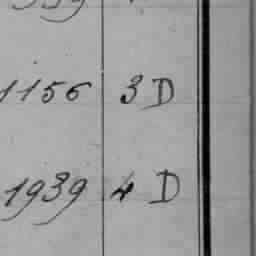 1156 3 D
1939 4 D